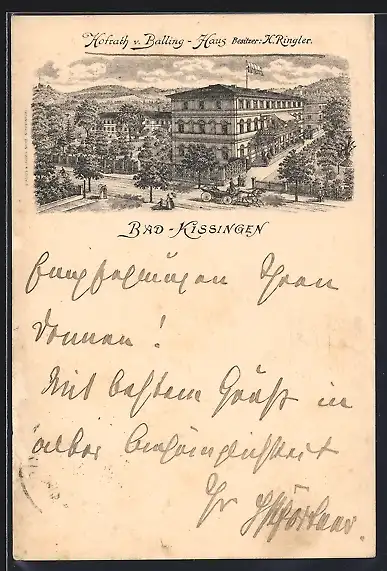 Hofrath v. Balling - Haus Besitzer: K. Ringler.
BAD-KISSINGEN
Empfehlungen Ihren
Donnen!
Mit bestem Gruß in
alter Anhänglichkeit
Ihr